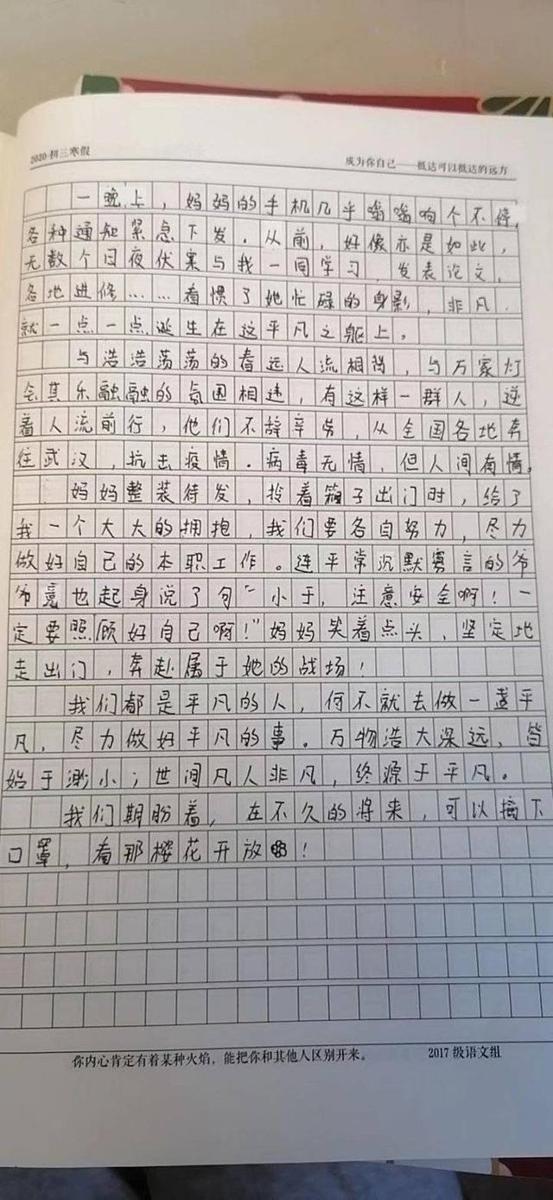 2020·初三寒假
成为你自己——抵达可以抵达的远方
一晚上，妈妈的手机几乎嗡嗡响个不停，
各种通知紧急下发。从前，好像亦是如此，
无数个日夜伏案与我一同学习，发表论文，
各地进修……看惯了她忙碌的身影，非凡，
就一点一点诞生在这平凡之躯上。
与浩浩荡荡的春运人流相背，与万家灯
会其乐融融的氛围相违，有这样一群人，逆
着人流前行，他们不辞辛劳，从全国各地奔
往武汉，抗击疫情。病毒无情，但人间有情。
妈妈整装待发，拎着箱子出门时，给了
我一个大大的拥抱，我们要各自努力，尽力
做好自己的本职工作。连平常沉默寡言的爷
爷竟也起身说了句“小于，注意安全啊！一
定要照顾好自己啊！”妈妈笑着点头，坚定地
走出门，奔赴属于她的战场！
我们都是平凡的人，何不就去做一盏平
凡，尽力做好平凡的事。万物浩大深远，皆
始于渺小；世间凡人非凡，终源于平凡。
我们期盼着，在不久的将来，可以摘下
口罩，看那樱花开放！
你内心肯定有着某种火焰，能把你和其他人区别开来。
2017级语文组